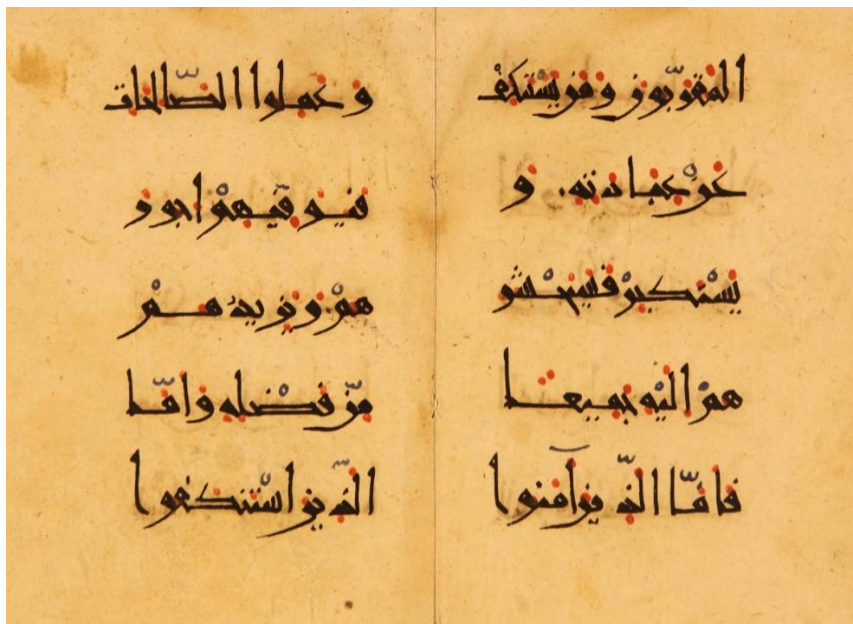 المقرّبون ومن يستنكف
عن عبادته و
يستكبر فسيحشر
هم اليه جميعا
فامّا الذّين آمنوا
وعملوا الصّالحات
فيوفّيهم اجور
هم ويزيدهم
مّن فضله وامّا
الذّين استنكفوا